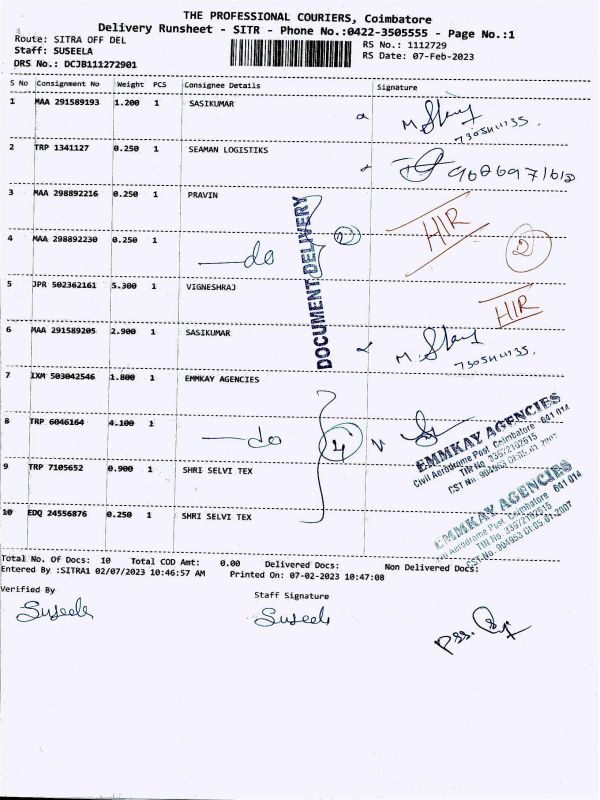 THE PROFESSIONAL COURIERS, Coimbatore
Delivery Runsheet - SITR - Phone No.:0422-3505555 - Page No.:1
Route: SITRA OFF DEL
Staff: SUSEELA
DRS No.: DCJB111272901
RS No.: 1112729
RS Date: 07-Feb-2023
S No Consignment No Weight PCS Consignee Details Signature
1 MAA 291589193 1.200 1 SASIKUMAR
2 TRP 1341127 0.250 1 SEAMAN LOGISTIKS
3 MAA 298892216 0.250 1 PRAVIN HIR
4 MAA 298892230 0.250 1 —do 2
DOCUMENT DELIVERY
5 JPR 502362161 5.300 1 VIGNESHRAJ HIR
6 MAA 291589205 2.900 1 SASIKUMAR
7 IXM 503042546 1.800 1 EMMKAY AGENCIES
8 TRP 6046164 4.100 1 —do 4
EMMKAY AGENCIES
Civil Aerodrome Post, Coimbatore - 641 014
TIN No 33972162615
CST No. 904953 Dt.05.01.2007
9 TRP 7105652 0.900 1 SHRI SELVI TEX
10 EDQ 24556876 0.250 1 SHRI SELVI TEX
EMMKAY AGENCIES
Civil Aerodrome Post, Coimbatore 641 014
TIN No 33972162615
CST No. 904953 Dt.05.01.2007
Total No. Of Docs: 10 Total COD Amt: 0.00 Delivered Docs: Non Delivered Docs:
Entered By :SITRA1 02/07/2023 10:46:57 AM Printed On: 07-02-2023 10:47:08
Verified By
Staff Signature
Suseela
Suseela